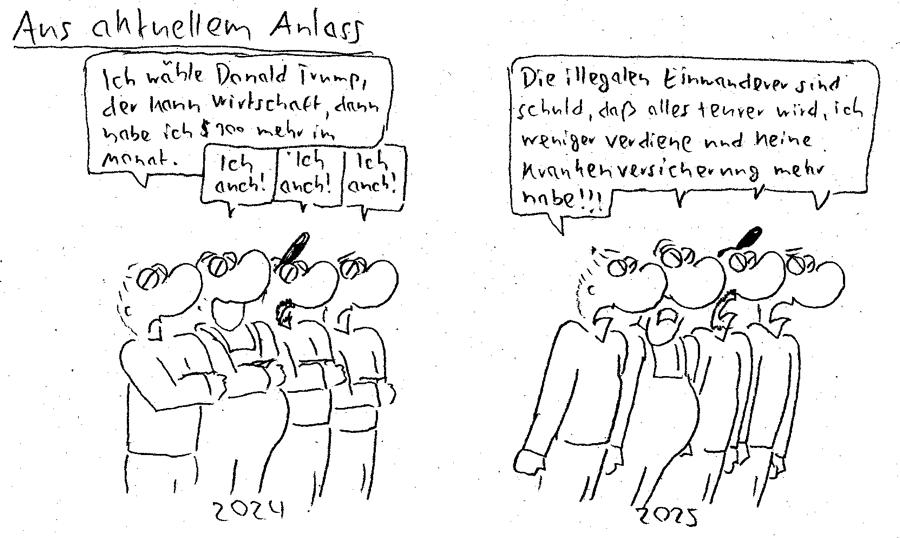 Aus aktuellem Anlass
Ich wähle Donald Trump,
der kann Wirtschaft, dann
habe ich $ 100 mehr im
Monat.
Ich
auch!
Ich
auch!
Ich
auch!
2024
Die illegalen Einwanderer sind
schuld, daß alles teurer wird, ich
weniger verdiene und keine
Krankenversicherung mehr
habe!!!
2025